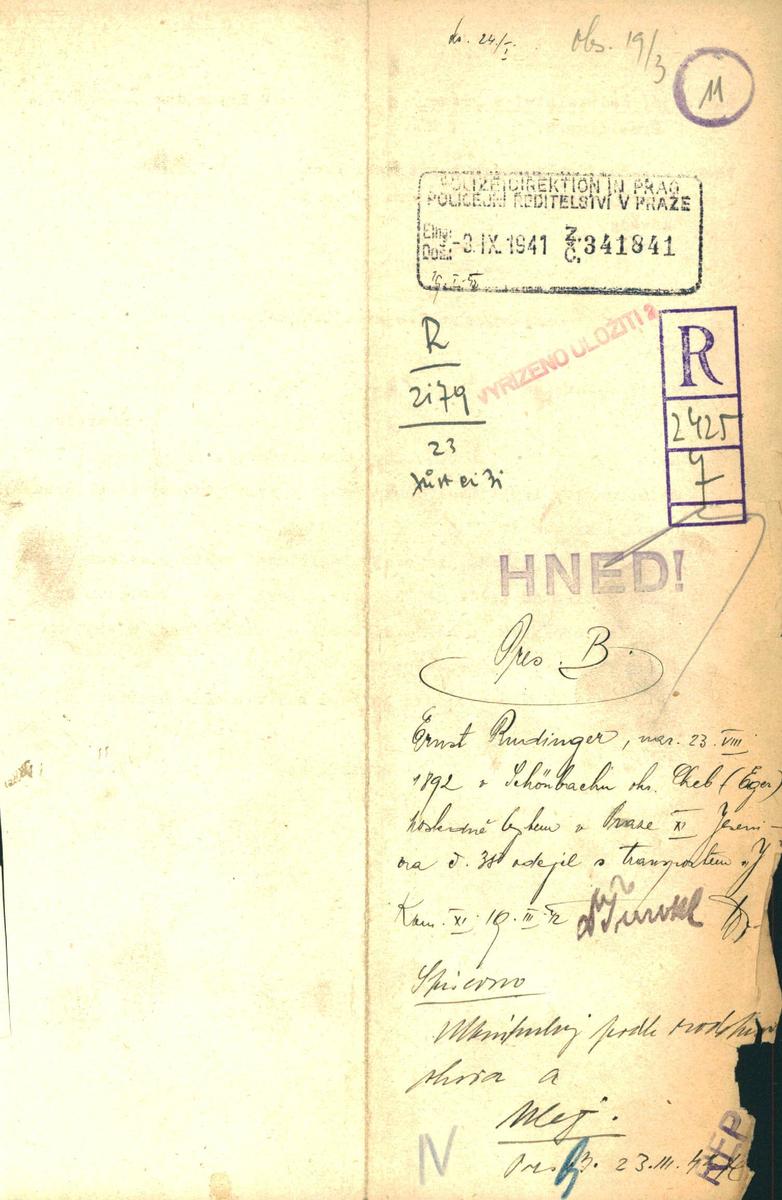 obs. 19/3
11
POLIZEIDIREKTION IN PRAG
POLICEJNÍ ŘEDITELSTVÍ V PRAZE
Eing.
Došlo -3. IX. 1941 Z. Č. 341841
R
2179
23
VYŘÍZENO ULOŽITI
R
2425
7
HNED!
Pres. B.
Ernst Rudinger, nar. 23. VIII.
1892 v Schönbachu okr. Cheb (Eger)
posledně bytem v Praze XI Jeseni-
ova č. odejel s transportem "J
Kom. XI. 19. III. 42
Spisovno
Manipuluj podle
a
Ulož.
IV
Pres. B. 23. III.